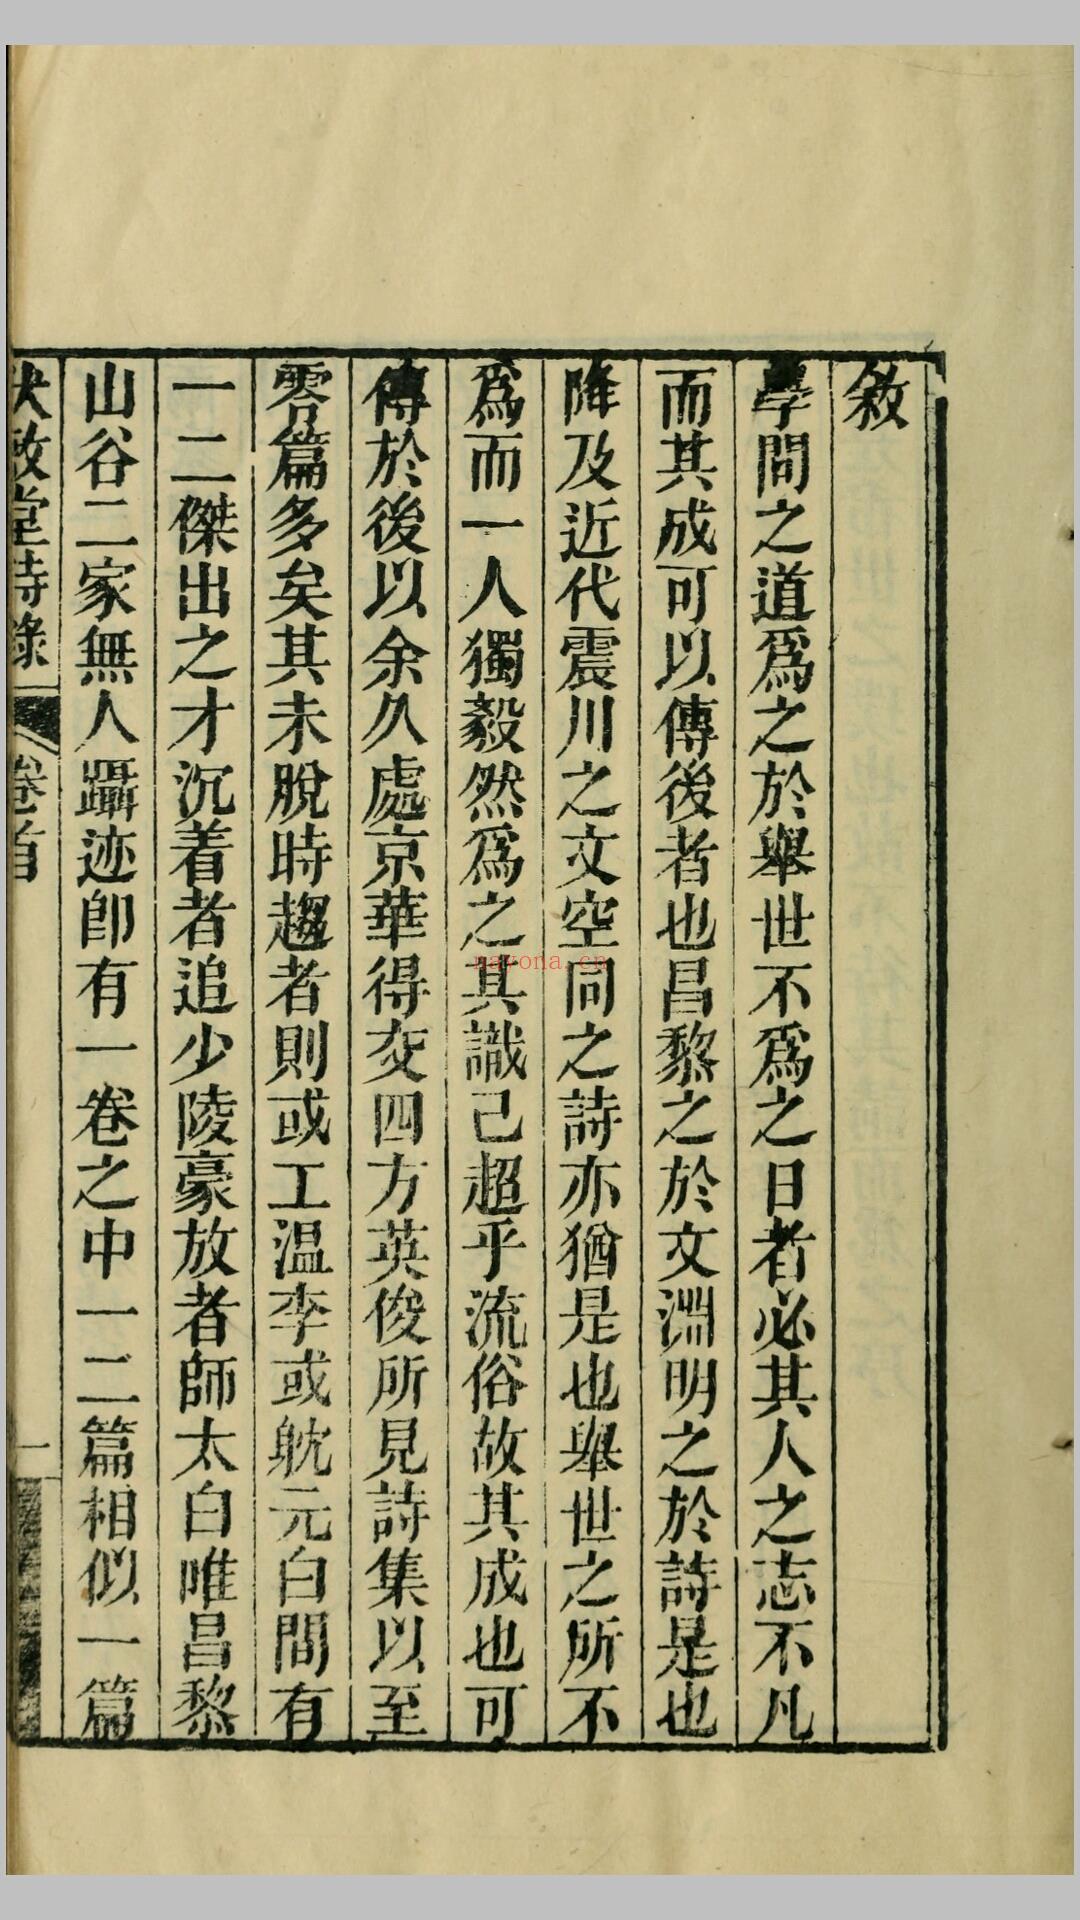 敘
學問之道爲之於舉世不爲之日者必其人之志不凡
而其成可以傳後者也昌黎之於文淵明之於詩是也
降及近代震川之文空同之詩亦猶是也舉世之所不
爲而一人獨毅然爲之其識己超乎流俗故其成也可
傳於後以余久處京華得交四方英俊所見詩集以至
零篇多矣其未脫時趨者則或工温李或躭元白間有
一二傑出之才沉着者追少陵豪放者師太白唯昌黎
山谷二家無人躡迹卽有一卷之中一二篇相似一篇
伏敔堂詩錄 卷首 一
nayona.cn